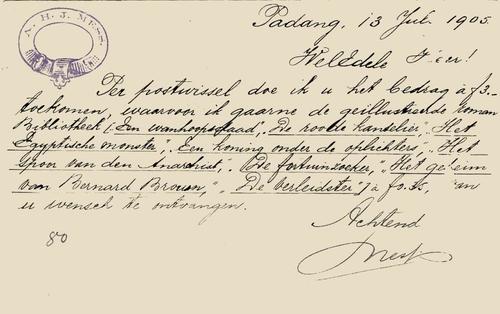 A. H. J. MESS.
Padang, 13 Juli 1905.
WelEdele Heer!
Per postwissel doe ik u het bedrag à f3.-
toekomen, waarvoor ik gaarne de geillustreerde roman
Bibliotheek („Een wanhoopsdaad", „De roode kandelier", „Het
Egyptische monster", „Een koning onder de oplichters", „Het
spoor van den Anarchist", „De fortuinzoeker", „Het geheim
van Bernard Brown", „De verleidster") à f0.75, van
u wensch te ontvangen.
Achtend
Mess
80